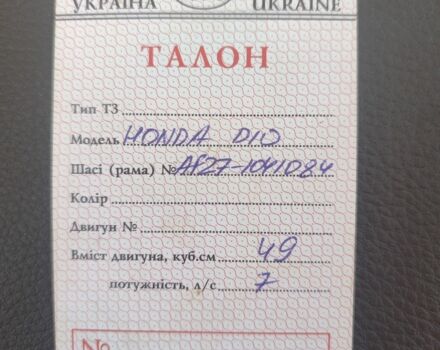 УКРАЇНА UKRAINE
ТАЛОН
Тип ТЗ
Модель HONDA DIO
Шасі (рама) № AF27-1041084
Колір
Двигун №
Вміст двигуна, куб.см 49
потужність, л/с 7
№